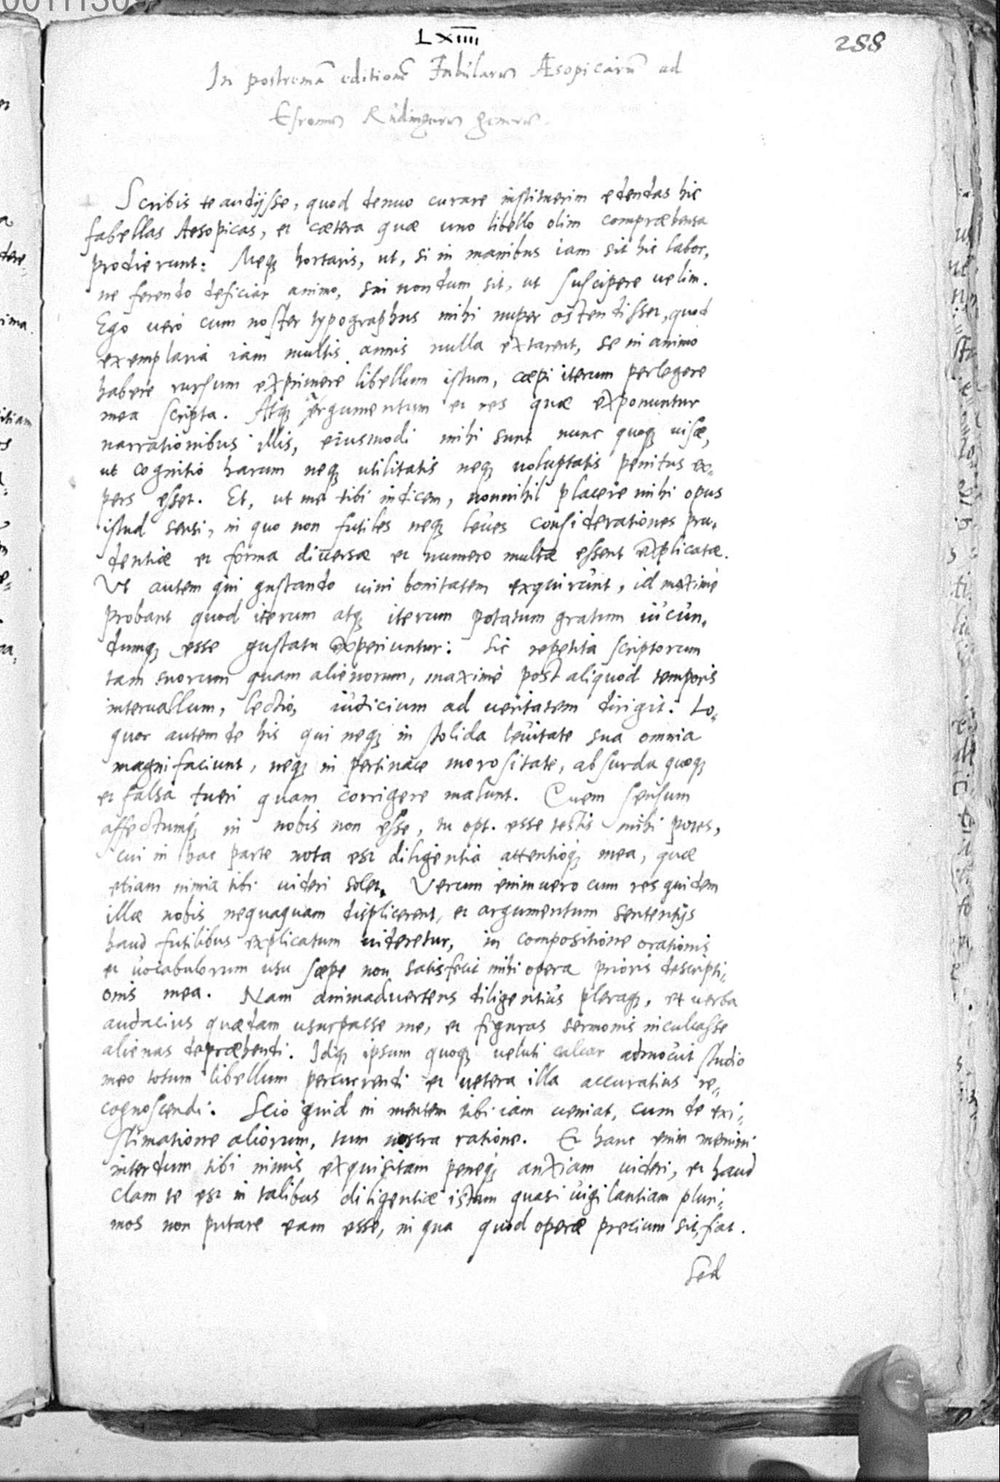 LXIIII
288
In postremā editionē Fabularum Æsopicarū ad
Esromum Rudingerum generum.
Scribis te audijsse, quod denuo curare instituerim edendas hic
fabellas Aesopicas, et cætera quæ uno libello olim compræhensa
prodierunt: Meq; hortaris, ut, si in manibus iam sit hic labor,
ne ferendo deficiar animo, sin nondum sit, ut suscipere uelim.
Ego uerò cum noster typographus mihi nuper ostendisset, quod
exemplaria iam multis annis nulla extarent, se in animo
habere rursum exprimere libellum istum, cœpi iterum perlegere
mea scripta. Atq; argumentum et res quæ exponuntur
narrationibus illis, eiusmodi mihi sunt nunc quoq; uisæ,
ut cognitio harum neq; utilitatis neq; uoluptatis penitus ex-
pers esset. Et, ut me tibi indicem, nonnihil placere mihi opus
istud sensi, in quo non futiles neq; leues considerationes pru-
dentiæ et forma diuersæ et numero multæ essent explicatæ.
Vt autem qui gustando uini bonitatem exquirunt, id maximè
probant quod iterum atq; iterum potatum gratum iucun-
dumq; esse gustatu experiuntur: Sic repetita scriptorum
tam suorum quam alienorum, maximè post aliquod temporis
interuallum, lectio, iudicium ad ueritatem dirigit. Lo-
quor autem de his qui neq; in stolida leuitate sua omnia
magnifaciunt, neq; in pertinace morositate, absurda quoq;
et falsa tueri quam corrigere malunt. Quem sensum
affectumq; in nobis non esse, tu opt. esse testis mihi potes,
cui in hac parte nota est diligentia attentioq; mea, quæ
etiam nimia tibi uideri solet. Verum enimuero cum res quidem
illæ nobis nequaquam displicerent, et argumentum sententijs
haud futilibus explicatum uideretur, in compositione orationis
et uocabulorum usu sæpe non satisfecit mihi opera prioris descripti-
onis mea. Nam animaduertens diligentius pleraq;, et uerba
audacius quædam usurpasse me, et figuras sermonis inculcasse
alienas depræhendi. Idq; ipsum quoq; ueluti calcar admouit studio
meo totum libellum percurrendi et uetera illa accuratius re-
cognoscendi. Scio quid in mentem tibi iam ueniat, cum de exi-
stimatione aliorum, tum nostra ratione. Et hanc enim memini
interdum tibi nimis exquisitam peneq; anxiam uideri, et haud
clam te est in talibus diligentiæ istam quasi uigilantiam pluri-
mos non putare eam esse, in qua quod operæ precium sit, fiat.
Sed